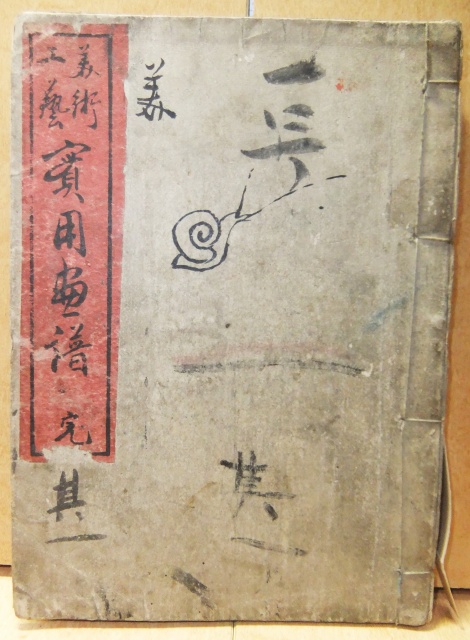 其一
美
美術
工藝
實用畫譜 完
其一